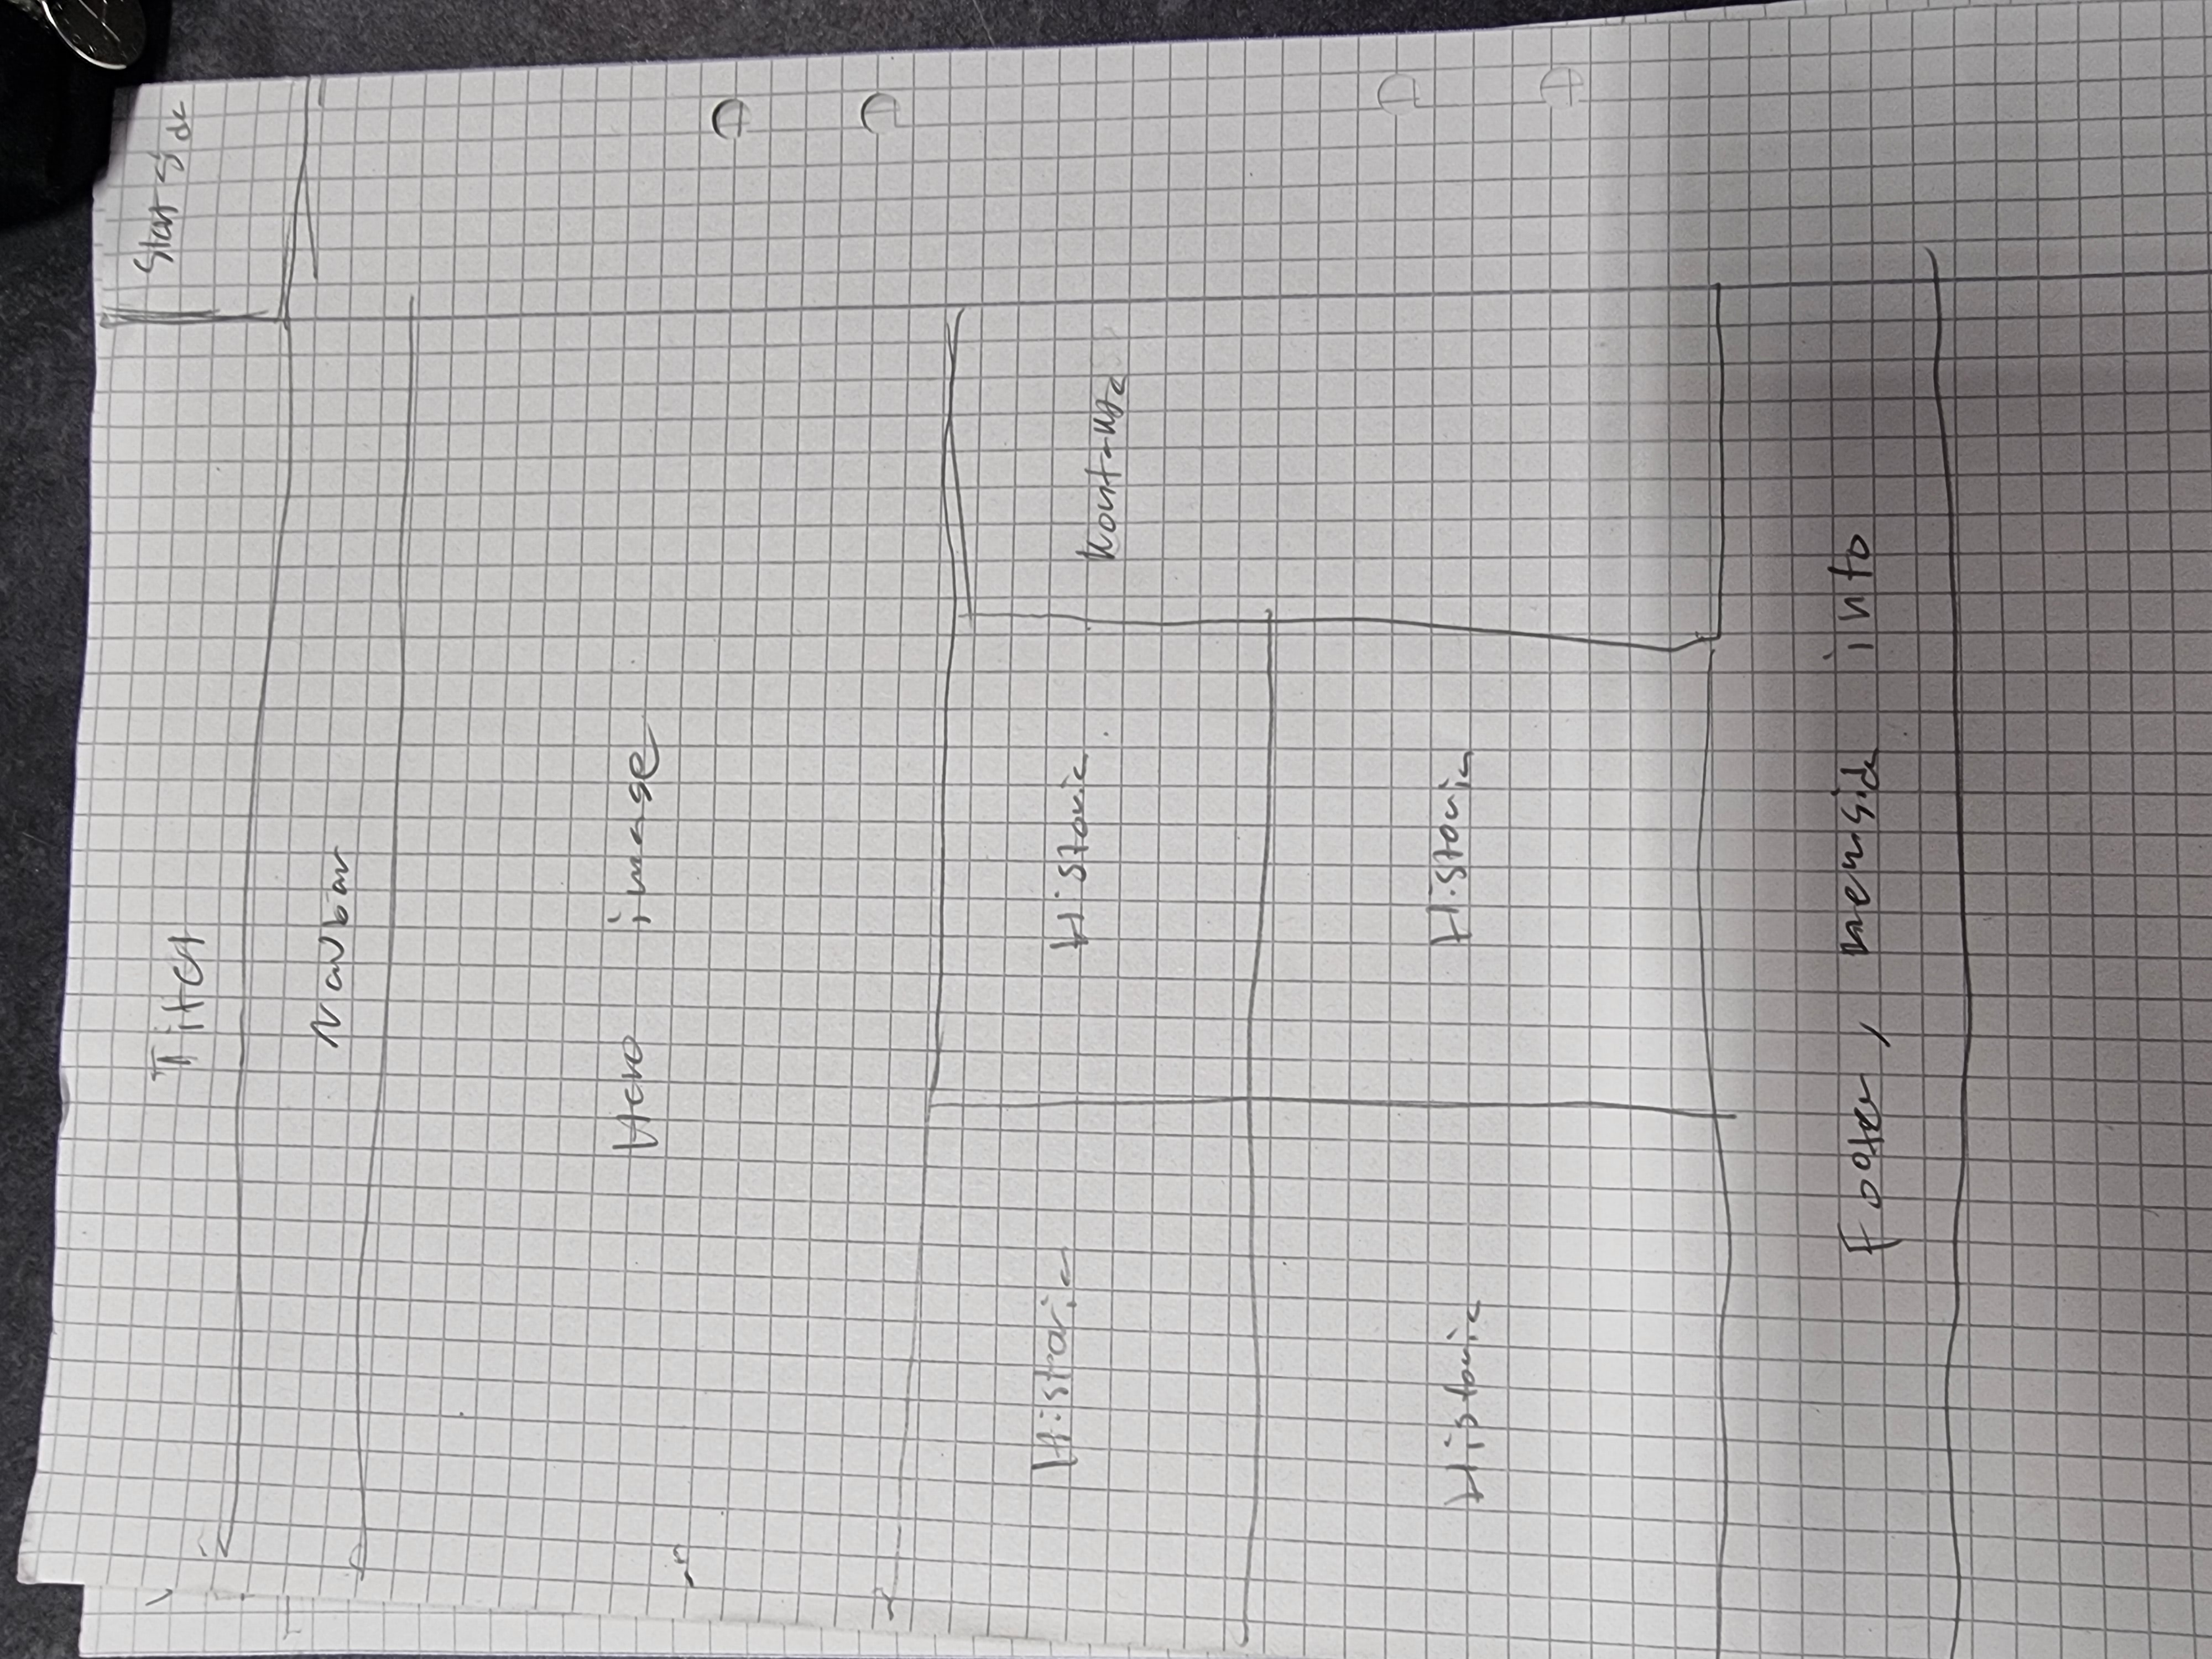 Titel
Start side
Navbar
Hero image
Historie
Historie
Kontakt
Historie
Historie
Footer, info